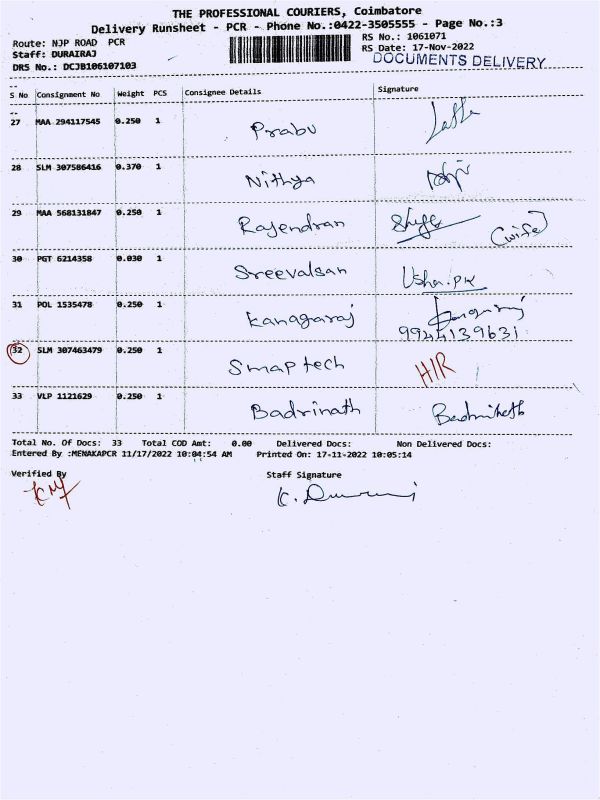 THE PROFESSIONAL COURIERS, Coimbatore
Delivery Runsheet - PCR - Phone No.:0422-3505555 - Page No.:3
Route: NJP ROAD PCR
RS No.: 1061071
Staff: DURAIRAJ
RS Date: 17-Nov-2022
DRS No.: DCJB106107103
DOCUMENTS DELIVERY
S No Consignment No Weight PCS Consignee Details Signature
27 MAA 294117545 0.250 1 Prabu
28 SLM 307586416 0.370 1 Nithya
29 MAA 568131847 0.250 1 Rajendran (wife)
30 PGT 6214358 0.030 1 Sreevalsan Usha.PK
31 POL 1535478 0.250 1 Kanagaraj
9944139631
32 SLM 307463479 0.250 1 Smaptech H/R
33 VLP 1121629 0.250 1 Badrinath Badrinath
Total No. Of Docs: 33 Total COD Amt: 0.00 Delivered Docs: Non Delivered Docs:
Entered By :MENAKAPCR 11/17/2022 10:04:54 AM Printed On: 17-11-2022 10:05:14
Verified By Staff Signature